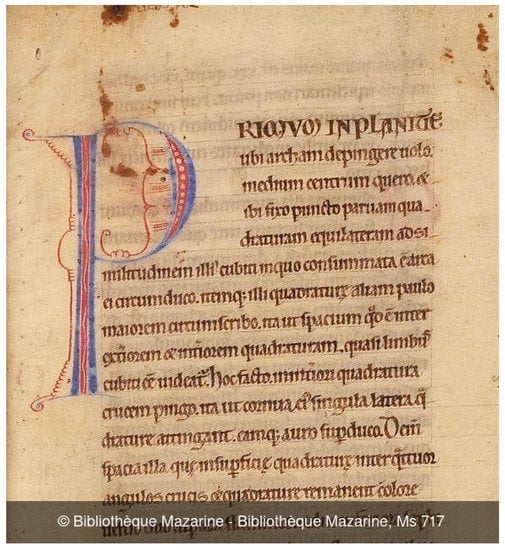 PRIMUM IN PLANITIE
ubi archam depingere uolo.
medium centrum quero. &
ibi fixo puncto paruam qua-
draturam equilateram ad si-
militudinem illi' cubiti in quo consummata ÷ arca
ei circumduco. itemq; illi quadraturę aliam paulo
maiorem circumscribo. ita ut spacium qđ ÷ inter
exťiorem & inťiorem quadraturam. quasi limb'
cubiti eē uideat᷑. Hoc facto. in inťiori quadratura
crucem pingo. ita ut cornua ei' singula latera q̄-
draturę attingant. eamq; auro suꝑduco. Dein̄
spacia illa. quę in suꝑficie quadraturę inter q̄ttuor
angulos crucis & quadraturę remanent colore
© Bibliothèque Mazarine - Bibliothèque Mazarine, Ms 717